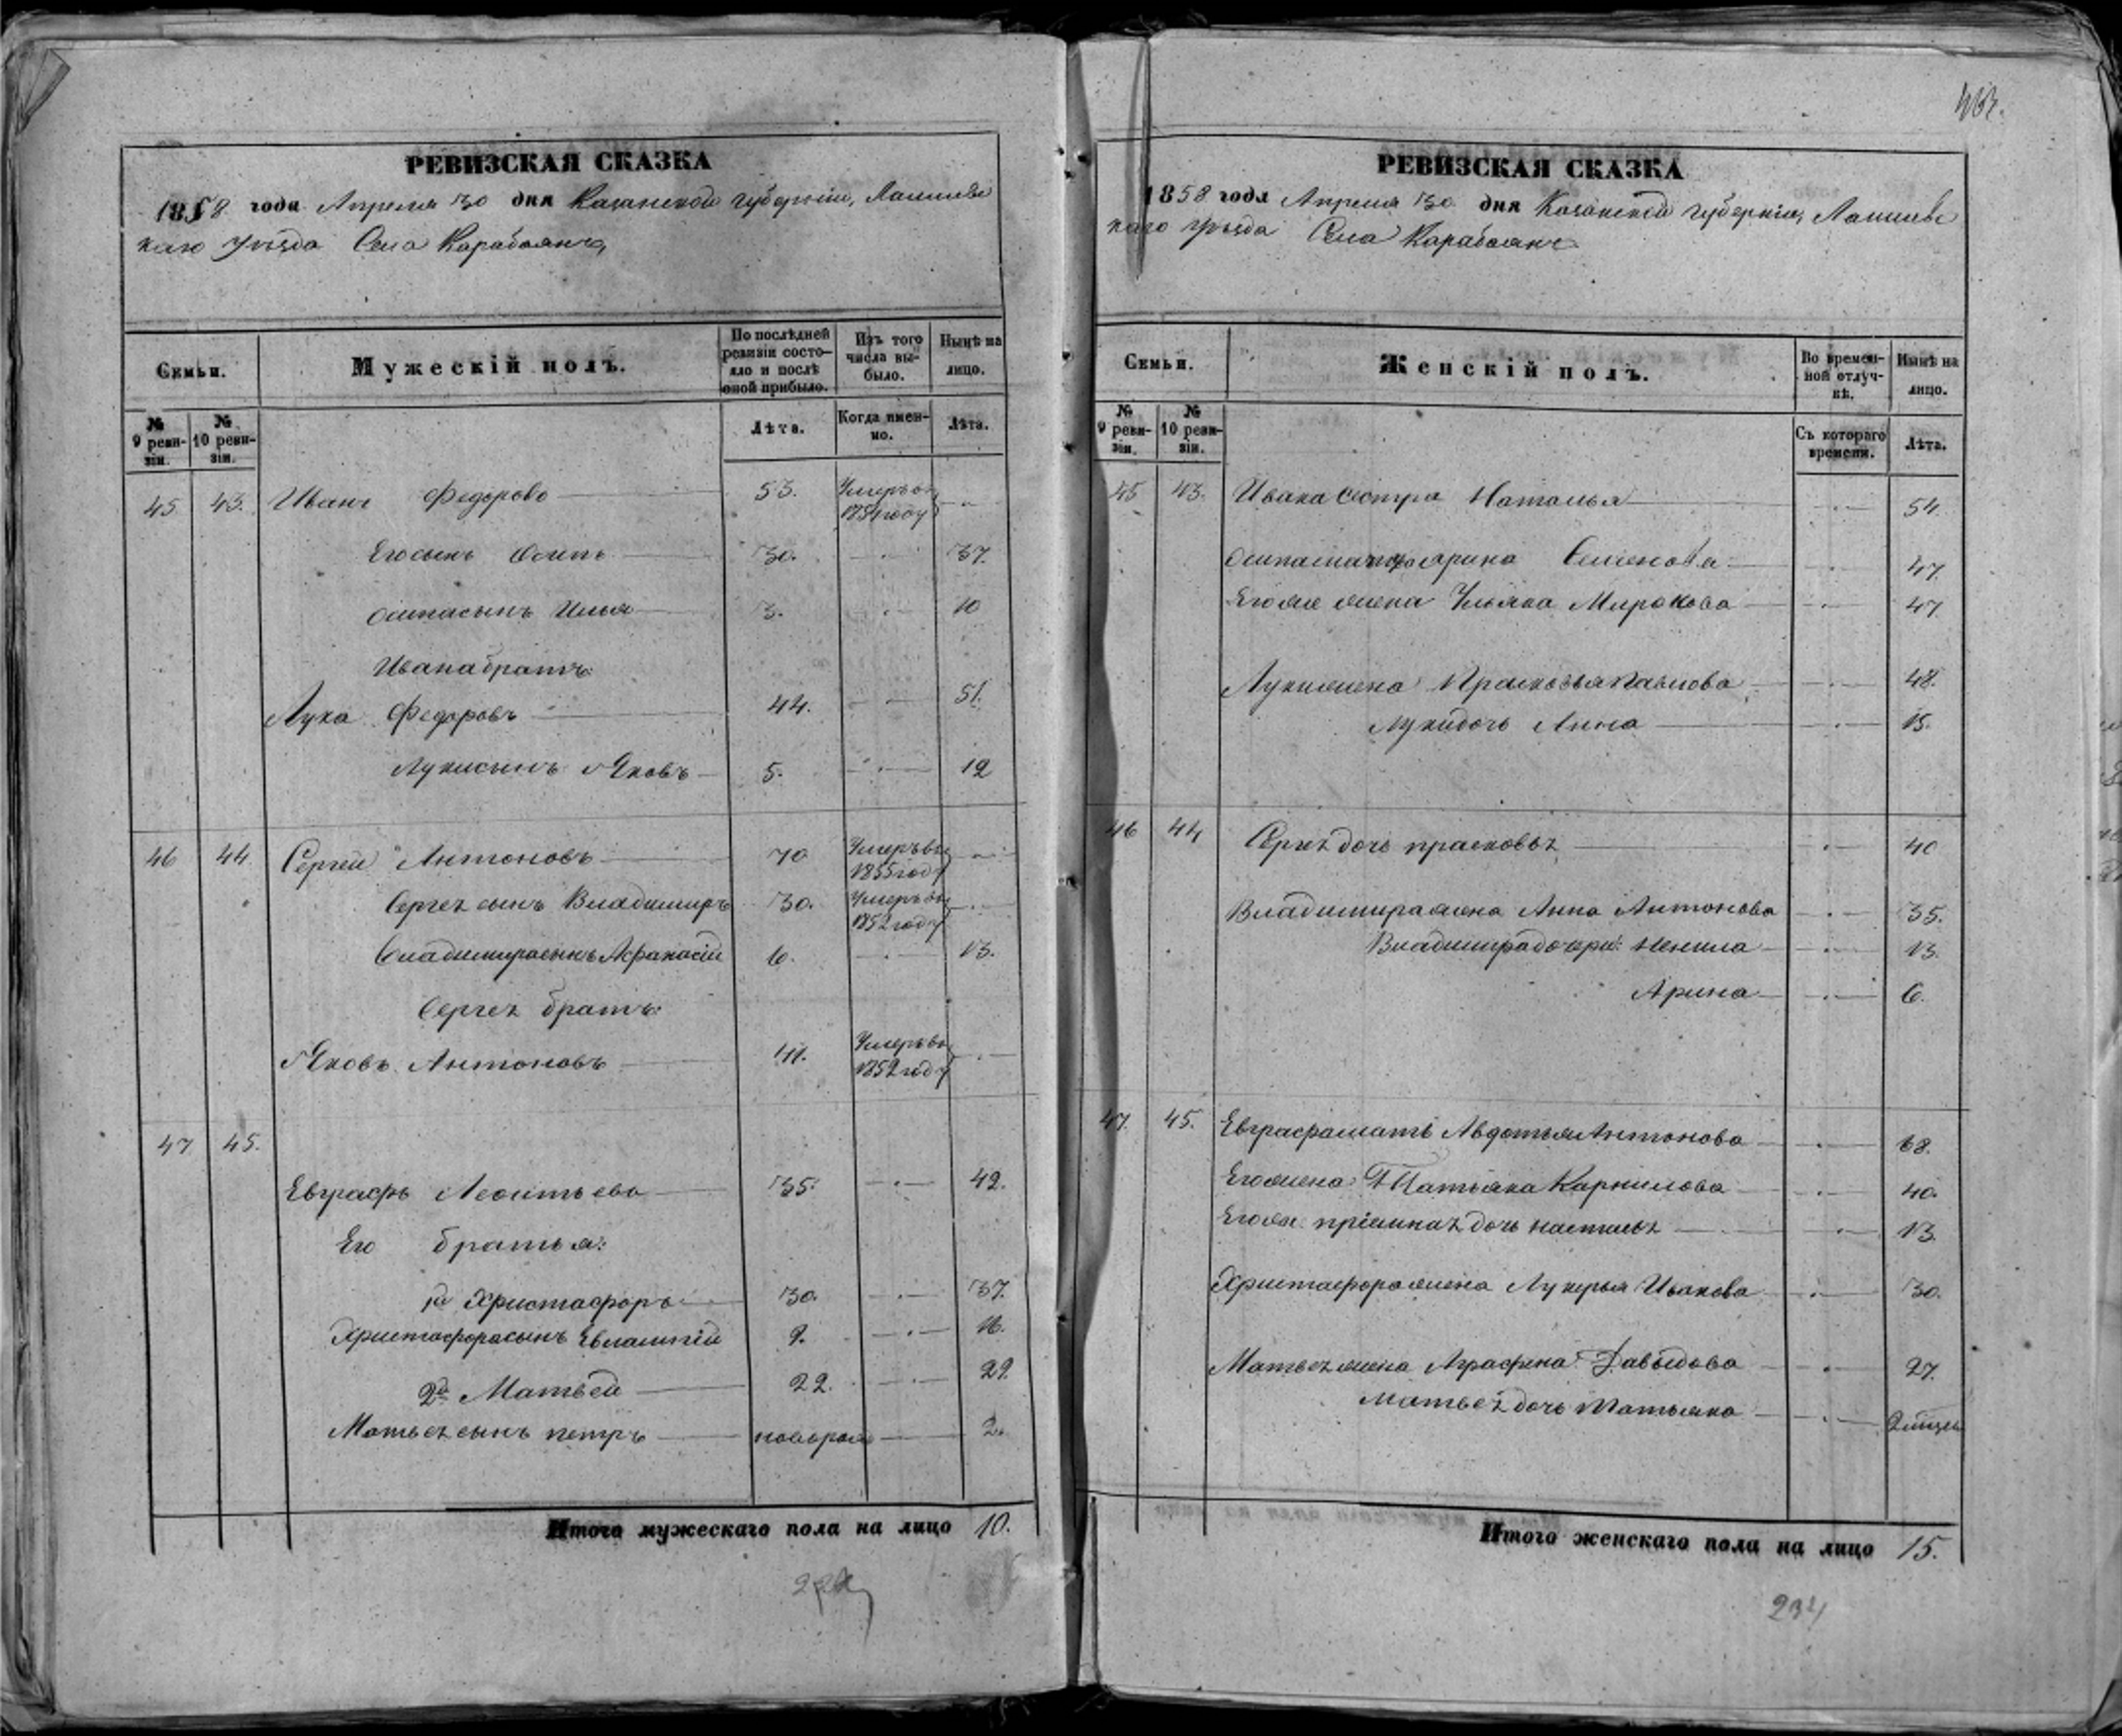 463.
РЕВИЗСКАЯ СКАЗКА
1858 года Апреля 30 дня Казанской губернии, Лаишевс
каго уѣзда Села Карабаянъ
Семьи.
Мужескій полъ.
По послѣдней ревизіи состояло и послѣ оной прибыло.
Изъ того числа выбыло.
Нынѣ на лицо.
№ 9 ревизіи.
№ 10 ревизіи.
Лѣта.
Когда именно.
Лѣта.
45 43. Иванъ Федорово 53. Умеръ въ 1854 году
Его сынъ Осипъ 30. 37.
Осипа сынъ Илья 3. 10
Ивана братъ:
Лука Федоровъ 44. 51.
Луки сынъ Яковъ 5. 12
46 44. Сергей Антоновъ 70 Умеръ въ 1855 году
Сергея сынъ Владимиръ 30. Умеръ въ 1852 году
Владимира сынъ Афанасій 6. 13.
Сергея братъ:
Яковъ Антоновъ 41. Умеръ въ 1852 году
47 45.
Евграфъ Леонтьево 35. 42.
Его братья:
1й Христофоръ 30. 37.
Христофора сынъ Евлампій 9. 16.
2й Матвей 22. 29.
Матвея сынъ петръ новорож 2.
Итого мужескаго пола на лицо 10.
РЕВИЗСКАЯ СКАЗКА
1858 года Апреля 30 дня Казанской губерніи, Лаишевс
каго уѣзда Села Карабаянъ
Семьи.
Женскій полъ.
Во временной отлучкѣ.
Нынѣ на лицо.
№ 9 ревизіи.
№ 10 ревизіи.
Съ котораго времени.
Лѣта.
45 43. Ивана сестра Наталья 54.
Осипа мачиха Арина Семенова 47.
Его же жена Ульяна Миронова 47.
Луки жена Прасковья Павлова 48.
Луки дочь Анна 15.
46 44 Сергея дочь прасковья 40
Владимира жена Анна Антонова 35.
Владимира дочери: Ненила 13.
Арина 6.
47. 45. Евграфа мать Авдотья Антонова 68.
Его жена Татьяна Карнилова 40.
Его же пріемная дочь настасья 13.
Христофора жена Лукерья Иванова 30.
Матвея жена Аграфена Давыдова 27.
Матвея дочь Татьяна
Итого женскаго пола на лицо 15.
234